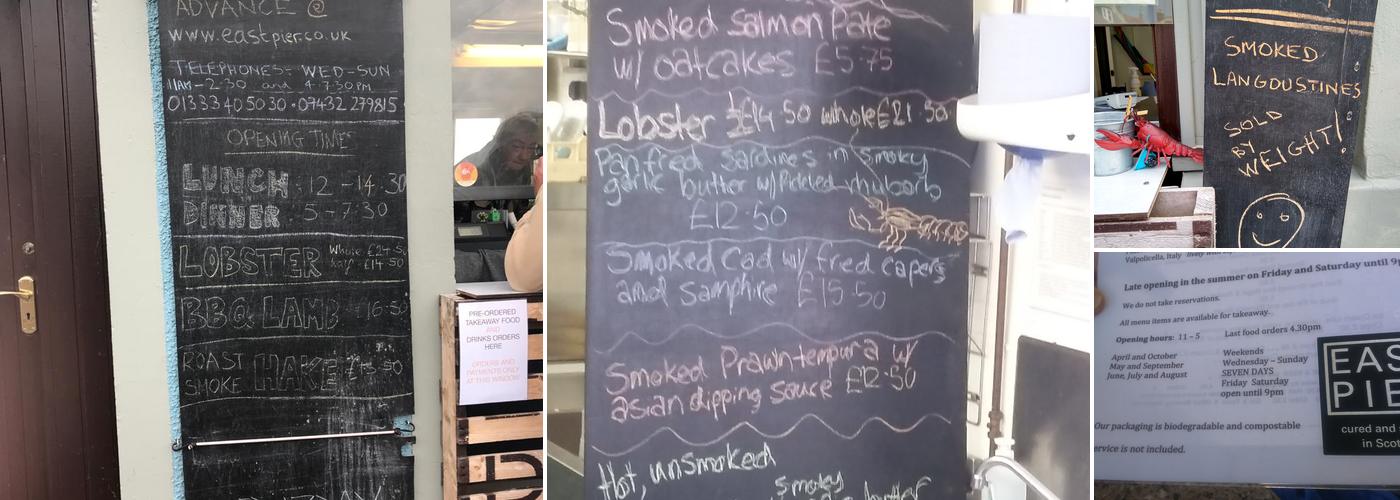 ADVANCE @
www.eastpier.co.uk
TELEPHONES: WED-SUN
11AM-2.30 and 4-7.30PM
01333 40 50 30 · 07432 279815
OPENING TIMES
LUNCH: 12 - 14.30
DINNER: 5-7:30
LOBSTER Whole £24.50
half £14.50
BBQ LAMB £16.50
ROAST HAKE £15.50
SMOKE
PRE-ORDERED
TAKEAWAY FOOD
AND
DRINKS ORDERS
HERE
ORDERS AND
PAYMENTS ONLY
AT THIS WINDOW
Smoked Salmon Pate
w/ oatcakes £5.75
Lobster ½£14.50 whole£21.50
Panfried Sardines in smoky
garlic butter w/ Pickled rhubarb
£12.50
Smoked Cod w/ fried capers
and Samphire £15.50
Smoked Prawn tempura w/
asian dipping sauce £12.50
Hot, unsmoked
smoky
butter
SMOKED
LANGOUSTINES
SOLD
BY
WEIGHT!
Valpolicella, Italy
Late opening in the summer on Friday and Saturday until 9p
We do not take reservations.
All menu items are available for takeaway.
Opening hours: 11 - 5 Last food orders 4.30pm
April and October Weekends
May and September Wednesday – Sunday
June, July and August SEVEN DAYS
Friday Saturday
open until 9pm
Our packaging is biodegradable and compostable
ervice is not included.
EAS
PIE
cured and s
in Scot